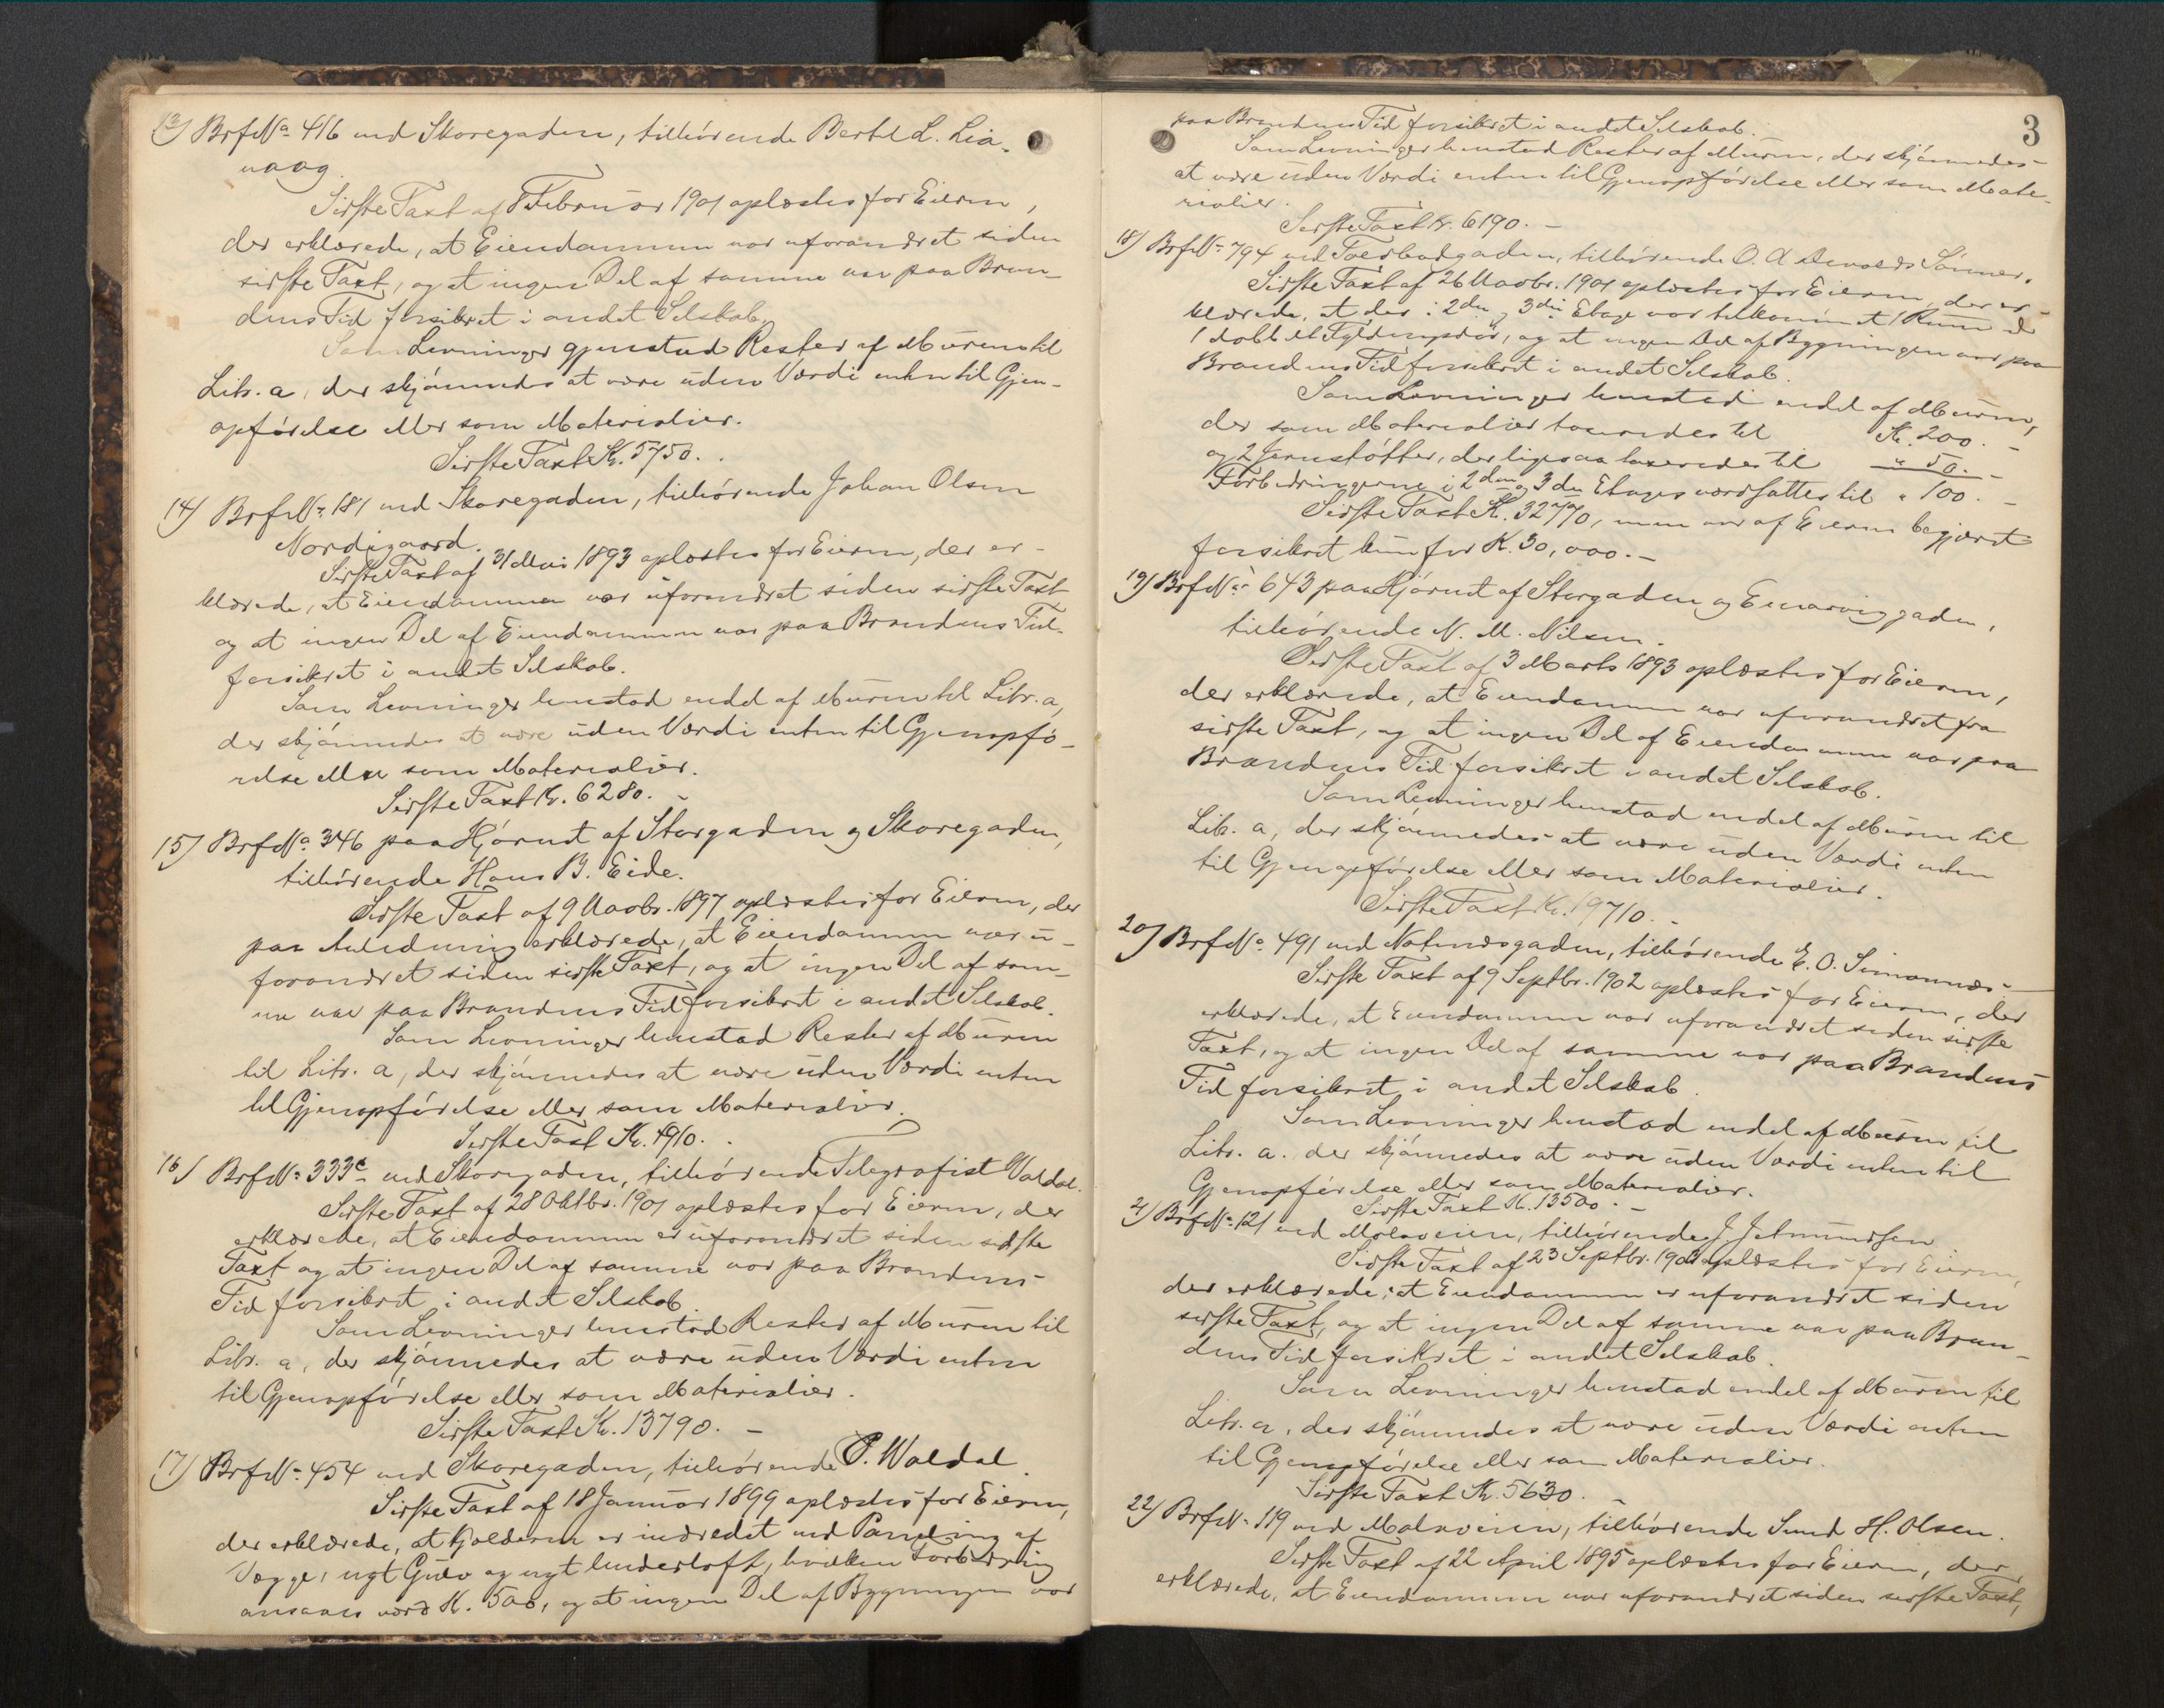 13) Brf.No 416 ved Skaregaden, tilhørende Bertel L. Lia-
vaag.
Sidste Taxt af 8 Februar 1901 oplæstes for Eieren,
der erklærede, at Eiendommen var uforandret siden
sidste Taxt, og at ingen Del af samme var paa Bran-
dens Tid forsikret i andet Selskab.
Som Levninger gjenstod Rester af Muren til
Litr. a, der skjønnedes at være uden Værdi enten til Gjen-
opførelse eller som Materialier.
Sidste Taxt Kr. 5750. -
14) Brf.No 181 ved Skaregaden, tilhørende Johan Olsen
Nordigaard.
Sidste Taxt af 31 Mai 1893 oplæstes for Eieren, der er-
klærede, at Eiendommen var uforandret siden sidste Taxt
og at ingen Del af Eiendommen var paa Brandens Tid
forsikret i andet Selskab.
Som Levninger henstod endel af Muren til Litr. a,
der skjønnedes at være uden Værdi enten til Gjenopfø-
relse eller som Materialier.
Sidste Taxt Kr. 6280. -
15) Brf.No 346 paa Hjørnet af Storgaden og Skaregaden,
tilhørende Hans B. Eide.
Sidste Taxt af 9 Novbr. 1897 oplæstes for Eieren, der
paa Anledning erklærede, at Eiendommen var u-
forandret siden sidste Taxt, og at ingen Del af sam-
me var paa Brandens Tid forsikret i andet Selskab.
Som Levninger henstod Rester af Muren
til Litr. a, der skjønnedes at være uden Værdi enten
til Gjenopførelse eller som Materialier.
Sidste Taxt Kr. 4910. -
16) Brf.No 333c ved Skaregaden, tilhørende Telegrafist Valdal.
Sidste Taxt af 28 Oktbr. 1901 oplæstes for Eieren, der
erklærede, at Eiendommen er uforandret siden sidste
Taxt og at ingen Del af samme var paa Brandens
Tid forsikret i andet Selskab.
Som Levninger henstod Rester af Muren til
Litr. a, der skjønnedes at være uden Værdi enten
til Gjenopførelse eller som Materialier.
Sidste Taxt Kr. 13790. -
17) Brf.No 454 ved Skaregaden, tilhørende P. Waldal.
Sidste Taxt af 18 Januar 1899 oplæstes for Eieren,
der erklærede, at Kjælderen er indredet med Paneling af
Vægge, nyt Gulv og nyt Underloft, hvilken Forbedring
ansaaes værd Kr. 500, og at ingen Del af Bygningen var
3
paa Brandens Tid forsikret i andet Selskab.
Som Levninger henstod Rester af Muren, der skjønnedes
at være uden Værdi enten til Gjenopførelse eller som Mate-
rialier.
Sidste Taxt Kr. 6190. -
18) Brf.No 794 ved Toldbodgaden, tilhørende O. A. Devolds Sønner.
Sidste Taxt af 26 Novbr. 1901 oplæstes for Eieren, der er-
klærede, at der i 2den og 3die Etage var tilkommet 1 Rum
1 dobbelt Fyldningsdør, og at ingen Del af Bygningen var paa
Brandens Tid forsikret i andet Selskab.
Som Levninger henstod endel af Muren,
der som Materialier taxeredes til Kr. 200. -
og 2 Jernstøtter, der ligesaa taxeredes til " 50. -
Forbedringerne i 2den og 3die Etages værdsattes til " 100. -
Sidste Taxt Kr. 32770, men var af Eieren begjæret
forsikret kun for Kr. 30,000. -
19) Brf.No 643 paa Hjørnet af Storgaden og Einarviggaden,
tilhørende N. M. Nilsen.
Sidste Taxt af 3 Marts 1893 oplæstes for Eieren,
der erklærede, at Eiendommen var uforandret fra
sidste Taxt, og at ingen Del af Eiendommen var paa
Brandens Tid forsikret i andet Selskab.
Som Levninger henstod endel af Muren til
Litr. a, der skjønnedes at være uden Værdi enten
til Gjenopførelse eller som Materialier.
Sidste Taxt Kr. 19710. -
20) Brf.No 491 ved Notenesgaden, tilhørende E. O. Simonnæs. -
Sidste Taxt af 9 Septbr. 1902 oplæstes for Eieren, der
erklærede, at Eiendommen var uforandret siden sidste
Taxt, og at ingen Del af samme var paa Brandens
Tid forsikret i andet Selskab.
Som Levninger henstod endel af Muren til
Litr. a. der skjønnedes at være uden Værdi enten til
Gjenopførelse eller som Materialier.
Sidste Taxt Kr. 13500. -
21) Brf.No 121 ved Moloveien, tilhørende J. Jetmundsen
Sidste Taxt af 23 Septbr. oplæstes for Eieren,
der erklærede, at Eiendommen er uforandret siden
sidste Taxt, og at ingen Del af samme var paa Bran-
dens Tid forsikret i andet Selskab.
Som Levninger henstod endel af Muren til
Litr. a, der skjønnedes at være uden Værdi enten
til Gjenopførelse eller som Materialier.
Sidste Taxt Kr. 5630.
22) Brf.No 119 ved Moloveien, tilhørende Send H. Olsen.
Sidste Taxt af 22 April 1895 oplæstes for Eieren, der
erklærede, at Eiendommen var uforandret siden sidste Taxt,